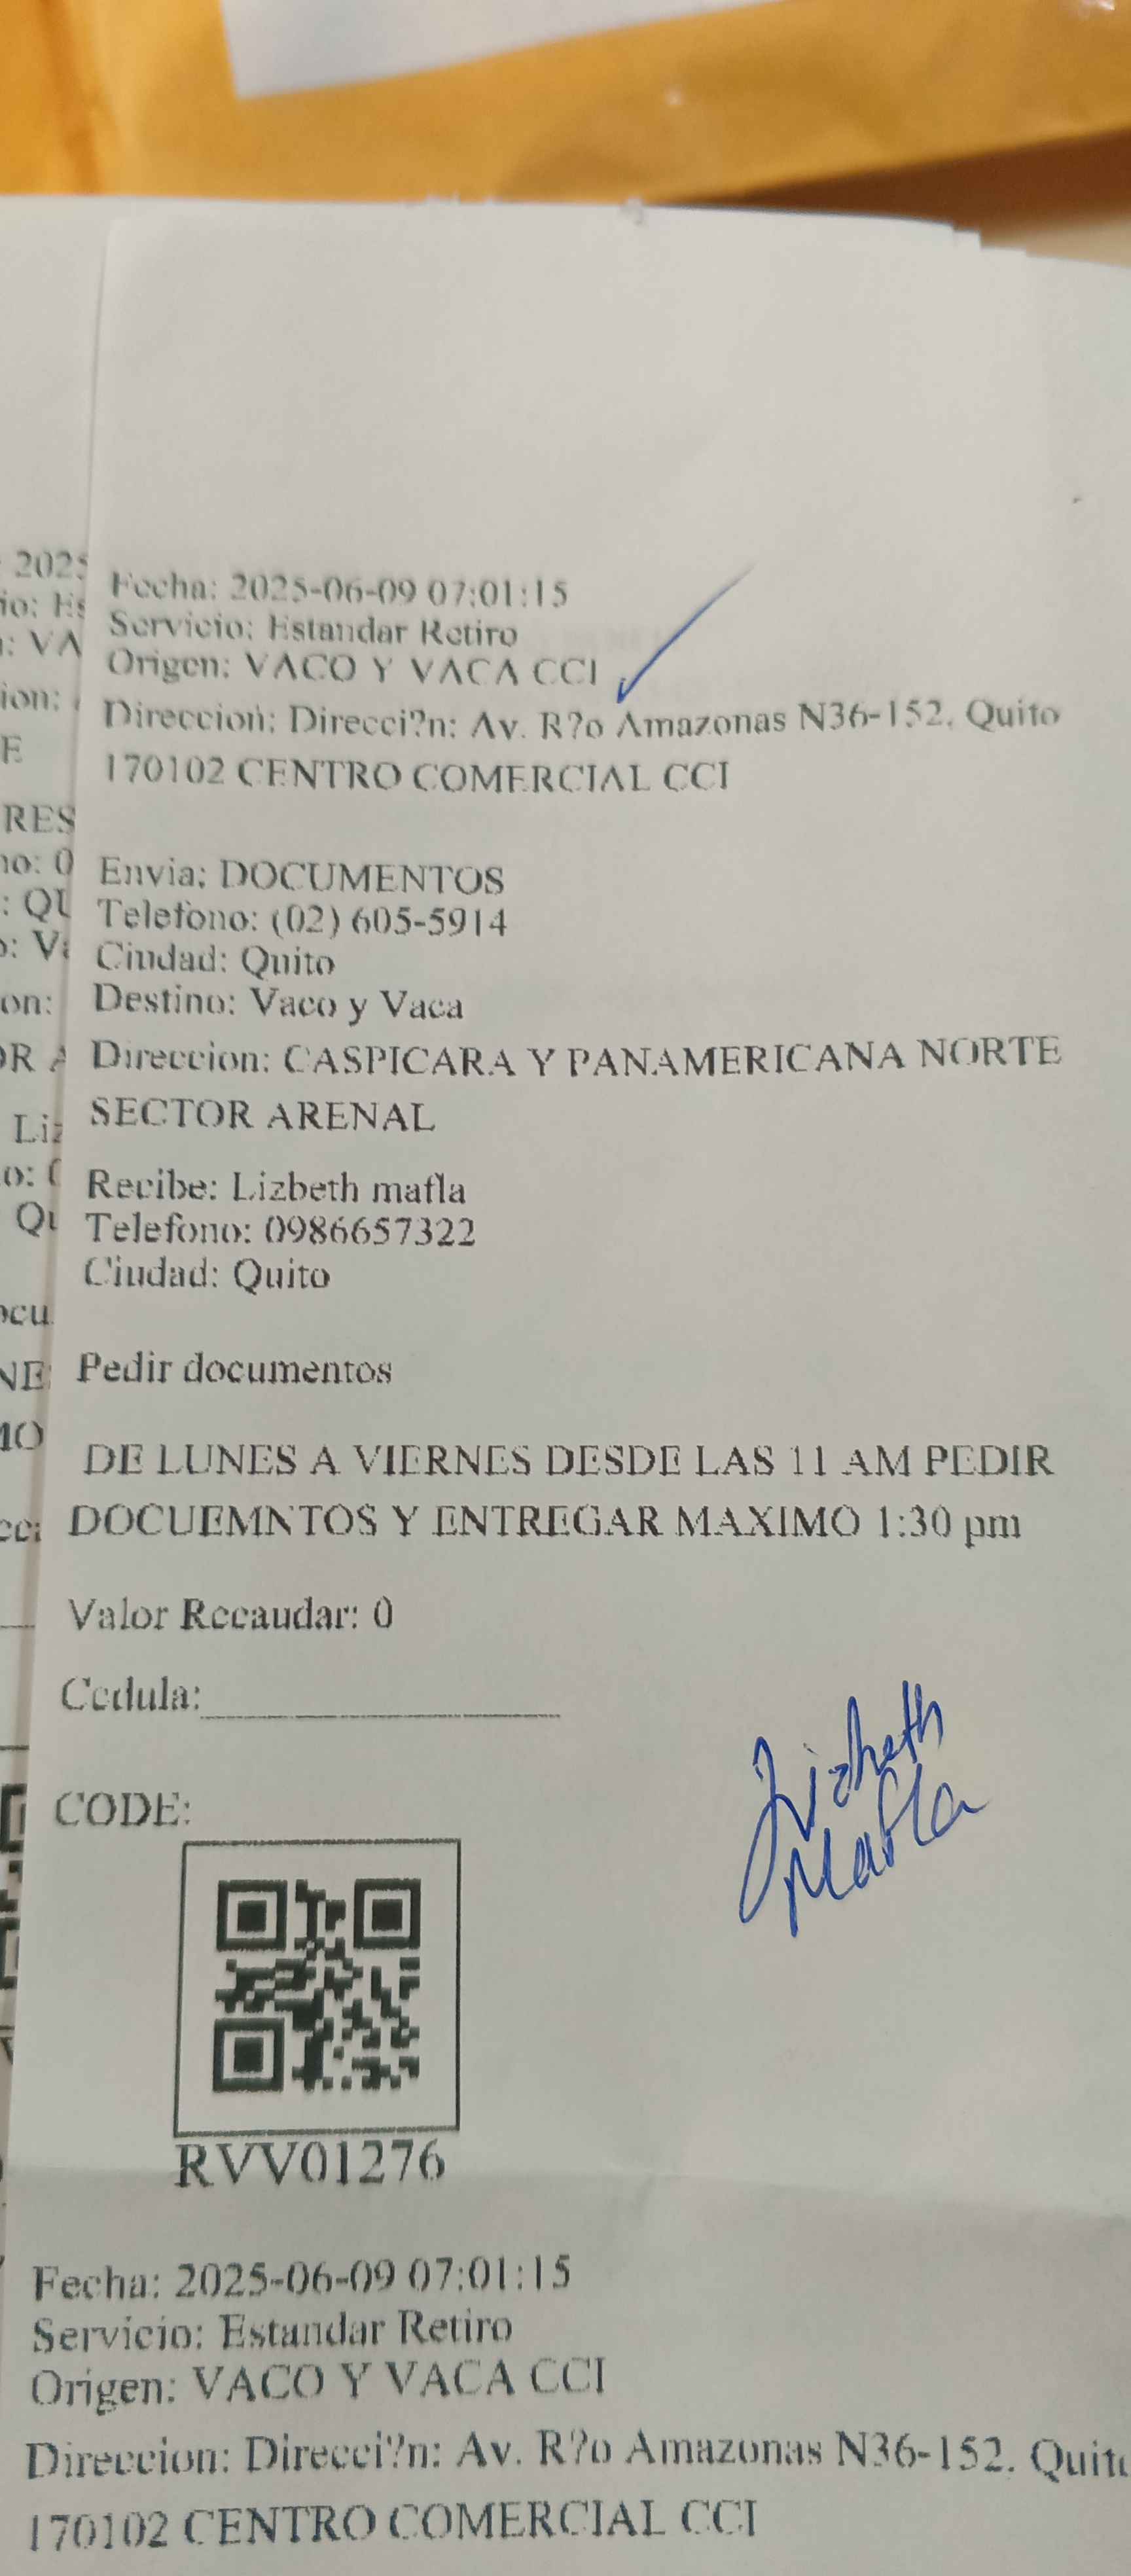 Fecha: 2025-06-09 07:01:15
Servicio: Estandar Retiro
Origen: VACO Y VACA CCI
Direccion: Direcci?n: Av. R?o Amazonas N36-152, Quito
170102 CENTRO COMERCIAL CCI
Envia: DOCUMENTOS
Telefono: (02) 605-5914
Ciudad: Quito
Destino: Vaco y Vaca
Direccion: CASPICARA Y PANAMERICANA NORTE
SECTOR ARENAL
Recibe: Lizbeth mafla
Telefono: 0986657322
Ciudad: Quito
Pedir documentos
DE LUNES A VIERNES DESDE LAS 11 AM PEDIR
DOCUEMNTOS Y ENTREGAR MAXIMO 1:30 pm
Valor Recaudar: 0
Cedula:
Lizbeth
Mafla
CODE:
RVV01276
Fecha: 2025-06-09 07:01:15
Servicio: Estandar Retiro
Origen: VACO Y VACA CCI
Direccion: Direcci?n: Av. R?o Amazonas N36-152. Quito
170102 CENTRO COMERCIAL CCI